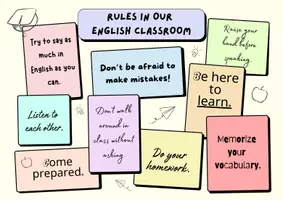 RULES IN OUR
ENGLISH CLASSROOM
Try to say as
much in
English as you
can.
Don't be afraid to
make mistakes!
Raise your
hand before
speaking.
Be here
to
learn.
Listen to
each other.
Don't walk
around in
class without
asking.
Come
prepared.
Do your
homework.
Memorize
your
vocabulary.